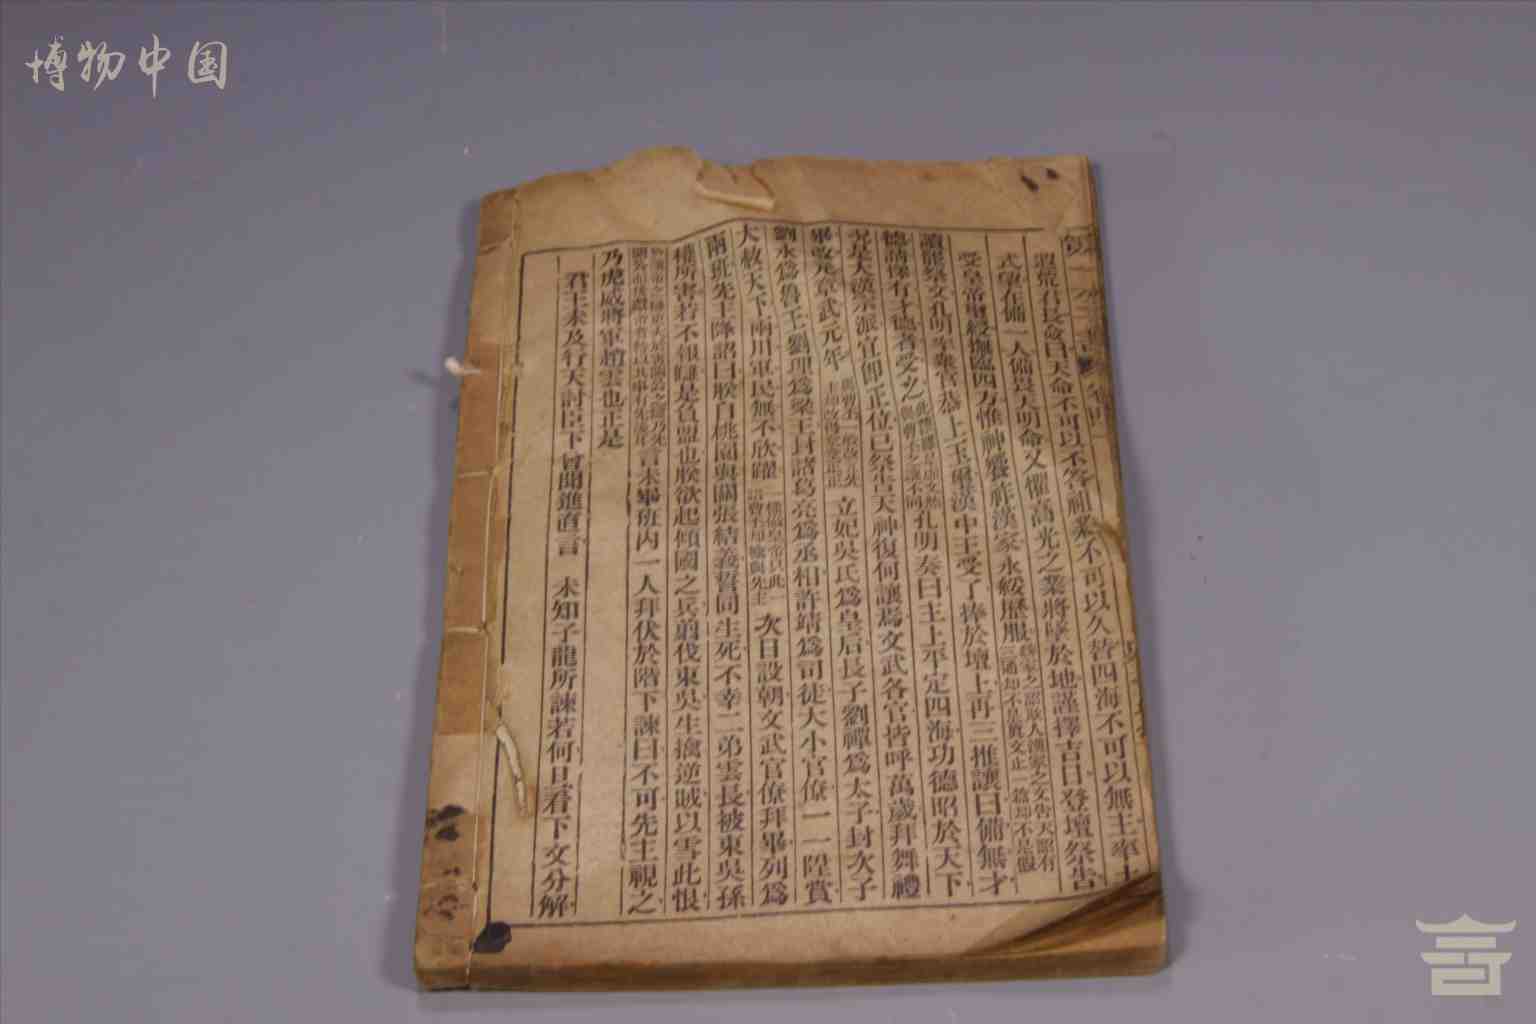 博物中国
遐荒君長僉曰天命不可以不答祖業不可以久替四海不可以無主率土
式望在備一人備畏天明命又懼高光之業將墜於地謹擇吉日登壇祭告
受皇帝璽綬撫臨四方惟神饗祚漢家永綏歷服
讀罷祭文孔明率衆官恭上玉璽漢中王受了捧於壇上再三推讓曰備無才
德請擇有才德者受之 孔明奏曰主上平定四海功德昭於天下
況是大漢宗派宜即正位已祭告天神復何讓焉文武各官皆呼萬歲拜舞禮
畢改元章武元年 立妃吳氏爲皇后長子劉禪爲太子封次子
劉永爲魯王劉理爲梁王封諸葛亮爲丞相許靖爲司徒大小官僚一一陞賞
大赦天下兩川軍民無不欣躍 次日設朝文武官僚拜畢列爲
兩班先主降詔曰朕自桃園與關張結義誓同生死不幸二弟雲長被東吳孫
權所害若不報讎是負盟也朕欲起傾國之兵翦伐東吳生擒逆賊以雪此恨
言未畢班內一人拜伏於階下諫曰不可先主視之
乃虎威將軍趙雲也正是
君王未及行天討臣下曾聞進直言 未知子龍所諫若何且看下文分解